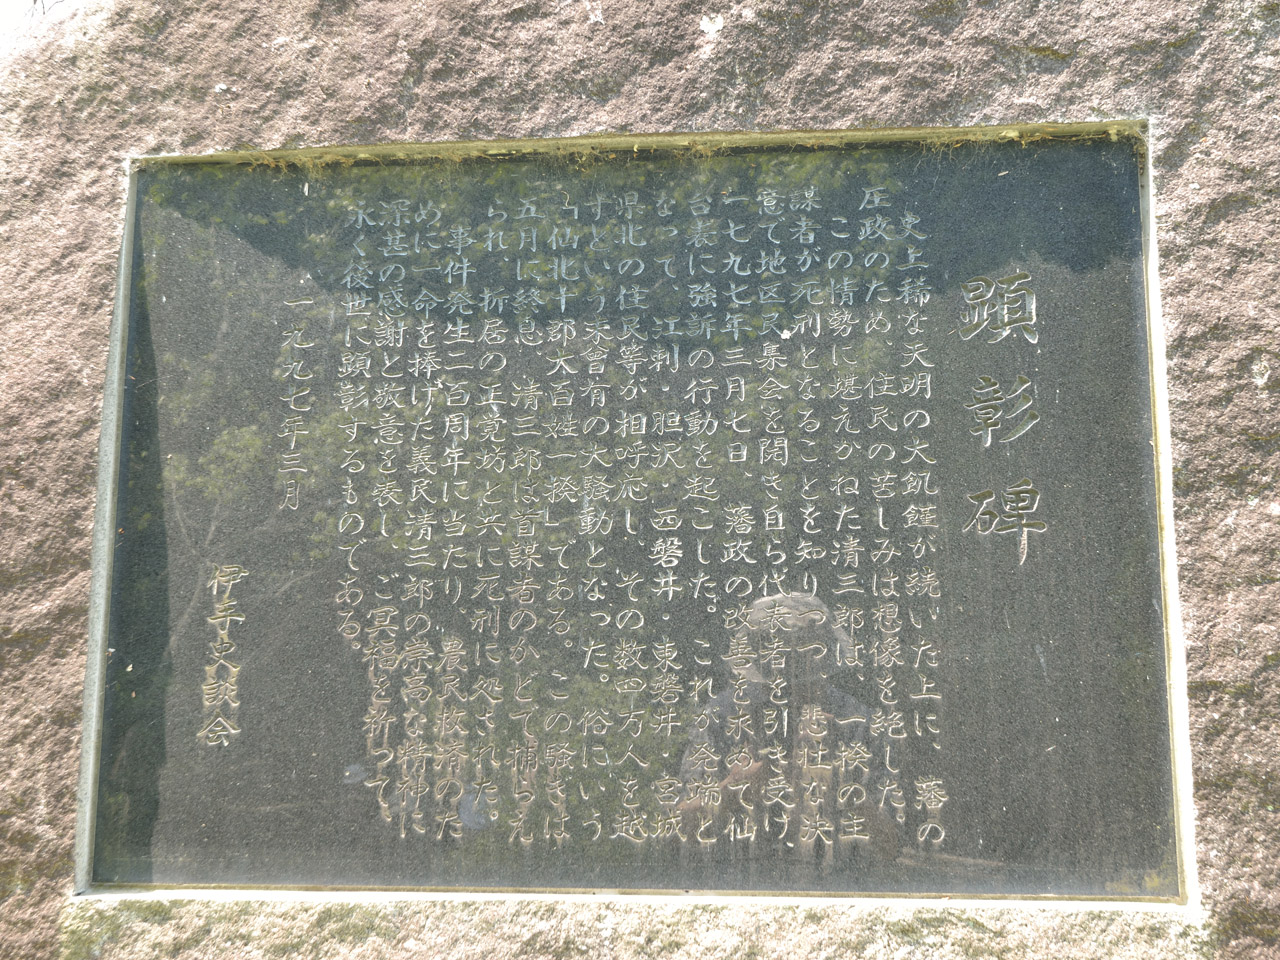 顕彰碑
史上稀な天明の大飢饉が続いた上に、藩の
圧政のため、住民の苦しみは想像を絶した。
この情勢に堪えかねた清三郎は、一揆の主
謀者が死刑となることを知りつつ、悲壮な決
意で地区民集会を開き自ら代表者を引き受け、
一七九七年三月七日、藩政の改善を求めて仙
台表に強訴の行動を起こした。これが発端と
なって、江刺・胆沢・西磐井・東磐井・宮城
県北の住民等が相呼応し、その数四万人を越
すという未曾有の大騒動となった。俗にいう
「仙北十郡大百姓一揆」である。この騒ぎは
五月に終息、清三郎は首謀者のかどで捕らえ
られ、折居の正覚坊と共に死刑に処された。
事件発生二百周年に当たり、農民救済のた
めに一命を捧げた義民清三郎の崇高な精神に
深甚の感謝と敬意を表し、ご冥福を祈って、
永く後世に顕彰するものである。
一九九七年三月
伊手史談会